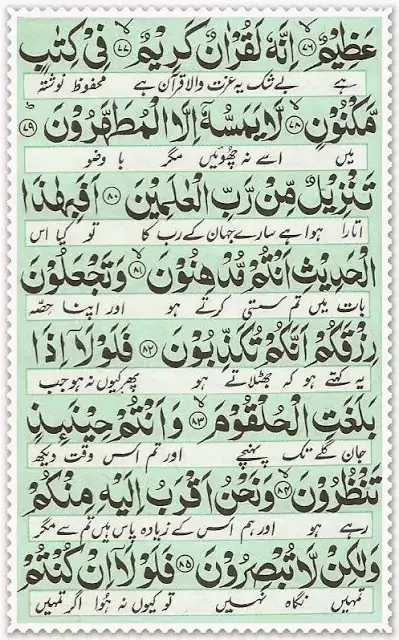 عَظِيْمٌ ﴿۷۶﴾ اِنَّهٗ لَقُرْاٰنٌ كَرِيْمٌ ﴿۷۷﴾ فِيْ كِتٰبٍ
ہے بے شک یہ عزت والا قرآن ہے محفوظ نوشتہ
مَّكْنُوْنٍ ﴿۷۸﴾ لَّا يَمَسُّهٗۤ اِلَّا الْمُطَهَّرُوْنَ ﴿۷۹﴾
میں اسے نہ چھوئیں مگر با وضو
تَنْزِيْلٌ مِّنْ رَّبِّ الْعٰلَمِيْنَ ﴿۸۰﴾ اَفَبِهٰذَا
اتارا ہوا ہے سارے جہان کے رب کا تو کیا اس
الْحَدِيْثِ اَنْتُمْ مُّدْهِنُوْنَ ﴿۸۱﴾ وَتَجْعَلُوْنَ
بات میں تم سستی کرتے ہو اور اپنا حصّہ
رِزْقَكُمْ اَنَّكُمْ تُكَذِّبُوْنَ ﴿۸۲﴾ فَلَوْلَاۤ اِذَا
یہ کہتے ہو کہ جھٹلاتے ہو پھر کیوں نہ ہو جب
بَلَغَتِ الْحُلْقُوْمَ ﴿۸۳﴾ وَاَنْتُمْ حِيْنَئِذٍ
جان گلے تک پہنچے اور تم اس وقت دیکھ
تَنْظُرُوْنَ ﴿۸۴﴾ وَنَحْنُ اَقْرَبُ اِلَيْهِ مِنْكُمْ
رہے ہو اور ہم اس کے زیادہ پاس ہیں تم سے مگر
وَلٰكِنْ لَّا تُبْصِرُوْنَ ﴿۸۵﴾ فَلَوْلَاۤ اِنْ كُنْتُمْ
تمہیں نگاہ نہیں تو کیوں نہ ہوا اگر تمہیں